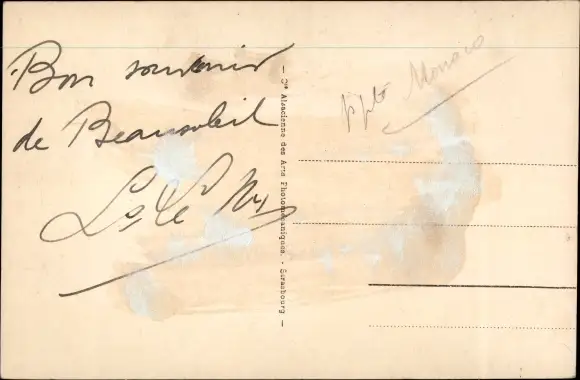 Bon souvenir
de Beausoleil
— Cie Alsacienne des Arts Photomécaniques. - Strasbourg —
Monaco